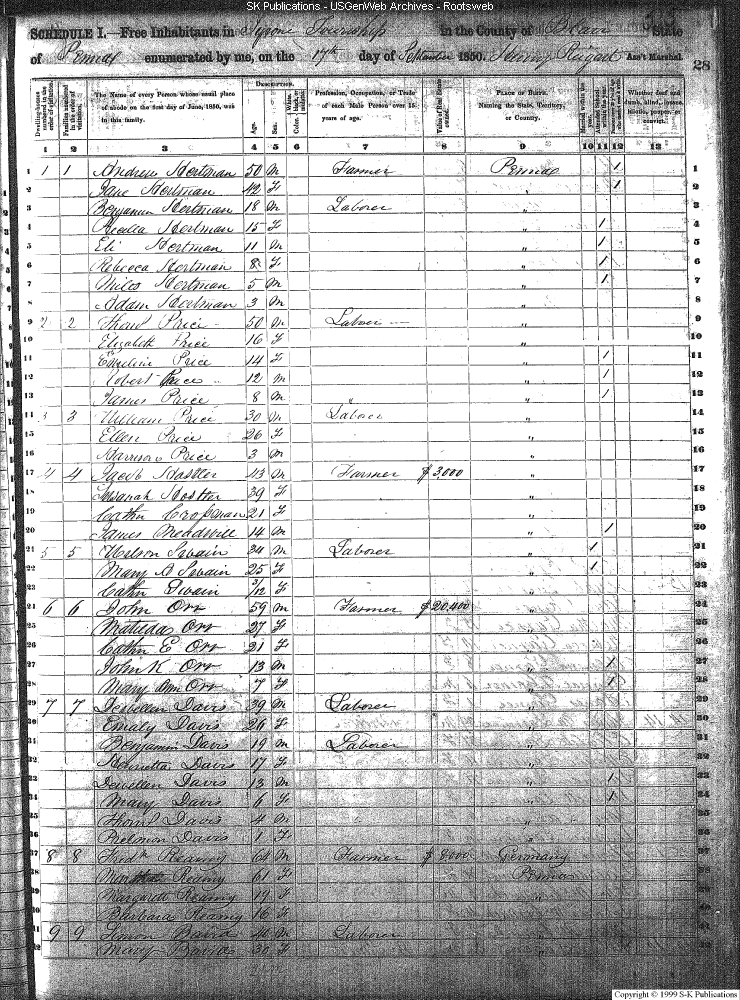 SK Publications - USGenWeb Archives - Rootsweb
SCHEDULE I.—Free Inhabitants in Tyrone Township in the County of Blair State
of Penna enumerated by me, on the 17th day of September 1850. Henry Ass't Marshal.
28
Dwelling-houses numbered in the order of visitation.
Families numbered in the order of visitation.
The Name of every Person whose usual place of abode on the first day of June, 1850, was in this family.
Description.
Age.
Sex.
Color. White, black, or mulatto.
Profession, Occupation, or Trade of each Male Person over 15 years of age.
Value of Real Estate owned.
Place of Birth. Naming the State, Territory, or Country.
Married within the year.
Attended School within the year.
Whether deaf and dumb, blind, insane, idiotic, pauper, or convict.
1 2 3 4 5 6 7 8 9 10 11 12 13
1 1 1 Andrew Hertman 50 M Farmer Penna / 1
2 Jane Hertman 42 F " / 2
3 Benjamin Hertman 18 M Laborer " 3
4 Hertman 15 F " / 4
5 Eli Hertman 11 M " / 5
6 Rebecca Hertman 8 F " / 6
7 Miles Hertman 5 M " / 7
8 Adam Hertman 3 M " 8
9 2 2 Price 50 M Labor " 9
10 Elizabeth Price 16 F " 10
11 Emeline Price 14 F " / 11
12 Robert Price 12 M " / 12
13 James Price 8 M " " / 13
14 3 3 William Price 30 M Laborer " 14
15 Ellen Price 26 F " 15
16 Harrison Price 3 M " 16
17 4 4 Jacob 43 M Farmer $ 3,000 " 17
18 39 F " 18
19 Cathn 21 F " 19
20 James Meadville 14 M " / 20
21 5 5 Wilson Swain 24 M Laborer " / 21
22 Mary A Swain 25 F " / 22
23 Cathn Swain 3/12 F " 23
24 6 6 John Orr 59 M Farmer $ 20,400 " 24
25 Matilda Orr 27 F " 25
26 Cathn E Orr 21 F " 26
27 John K Orr 13 M " / 27
28 Mary Ann Orr 7 F " / 28
29 7 7 Lewellen Davis 39 M Laborer " 29
30 Emaly Davis 26 F " 30
31 Benjamin Davis 19 M Laborer " 31
32 Henrietta Davis 17 F " 32
33 Lewellen Davis 13 M " / 33
34 Mary Davis 6 F " / 34
35 Davis 4 M " 35
36 Davis 1 F " 36
37 8 8 Fredk Reamy 64 M Farmer $ 8000 Germany 37
38 Reamy 61 F Penna 38
39 Margarett Reamy 19 F " 39
40 Barbara Reamy 16 F " 40
41 9 9 Simon Baird 40 M Laborer " 41
42 Mary Baird 30 F " 42
Copyright © 1999 S-K Publications